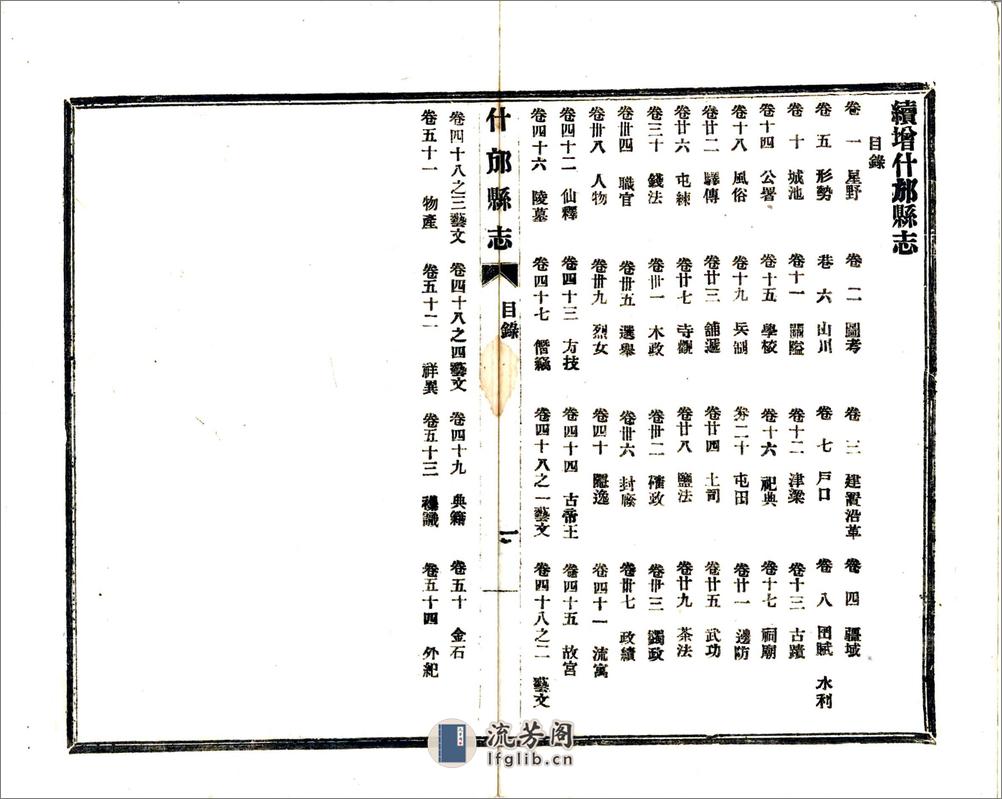 續增什邡縣志
目錄
卷一 星野 卷二 圖考 卷三 建置沿革 卷四 疆域
卷五 形勢 卷六 山川 卷七 戶口 卷八 田賦 水利
卷十 城池 卷十一 關隘 卷十二 津梁 卷十三 古蹟
卷十四 公署 卷十五 學校 卷十六 祀典 卷十七 祠廟
卷十八 風俗 卷十九 兵制 卷二十 屯田 卷廿一 邊防
卷廿二 驛傳 卷廿三 舖遞 卷廿四 土司 卷廿五 武功
卷廿六 屯練 卷廿七 寺觀 卷廿八 鹽法 卷廿九 茶法
卷三十 錢法 卷卅一 木政 卷卅二 榷政 卷卅三 蠲政
卷卅四 職官 卷卅五 選舉 卷卅六 封廕 卷卅七 政績
卷卅八 人物 卷卅九 烈女 卷四十 隱逸 卷四十一 流寓
卷四十二 仙釋 卷四十三 方技 卷四十四 古帝王 卷四十五 故宮
卷四十六 陵墓 卷四十七 僭竊 卷四十八之一藝文 卷四十八之二 藝文
什邡縣志 目錄 一
卷四十八之三藝文 卷四十八之四藝文 卷四十九 典籍 卷五十 金石
卷五十一 物產 卷五十二 祥異 卷五十三 識 卷五十四 外紀
流芳阁
lfglib.cn